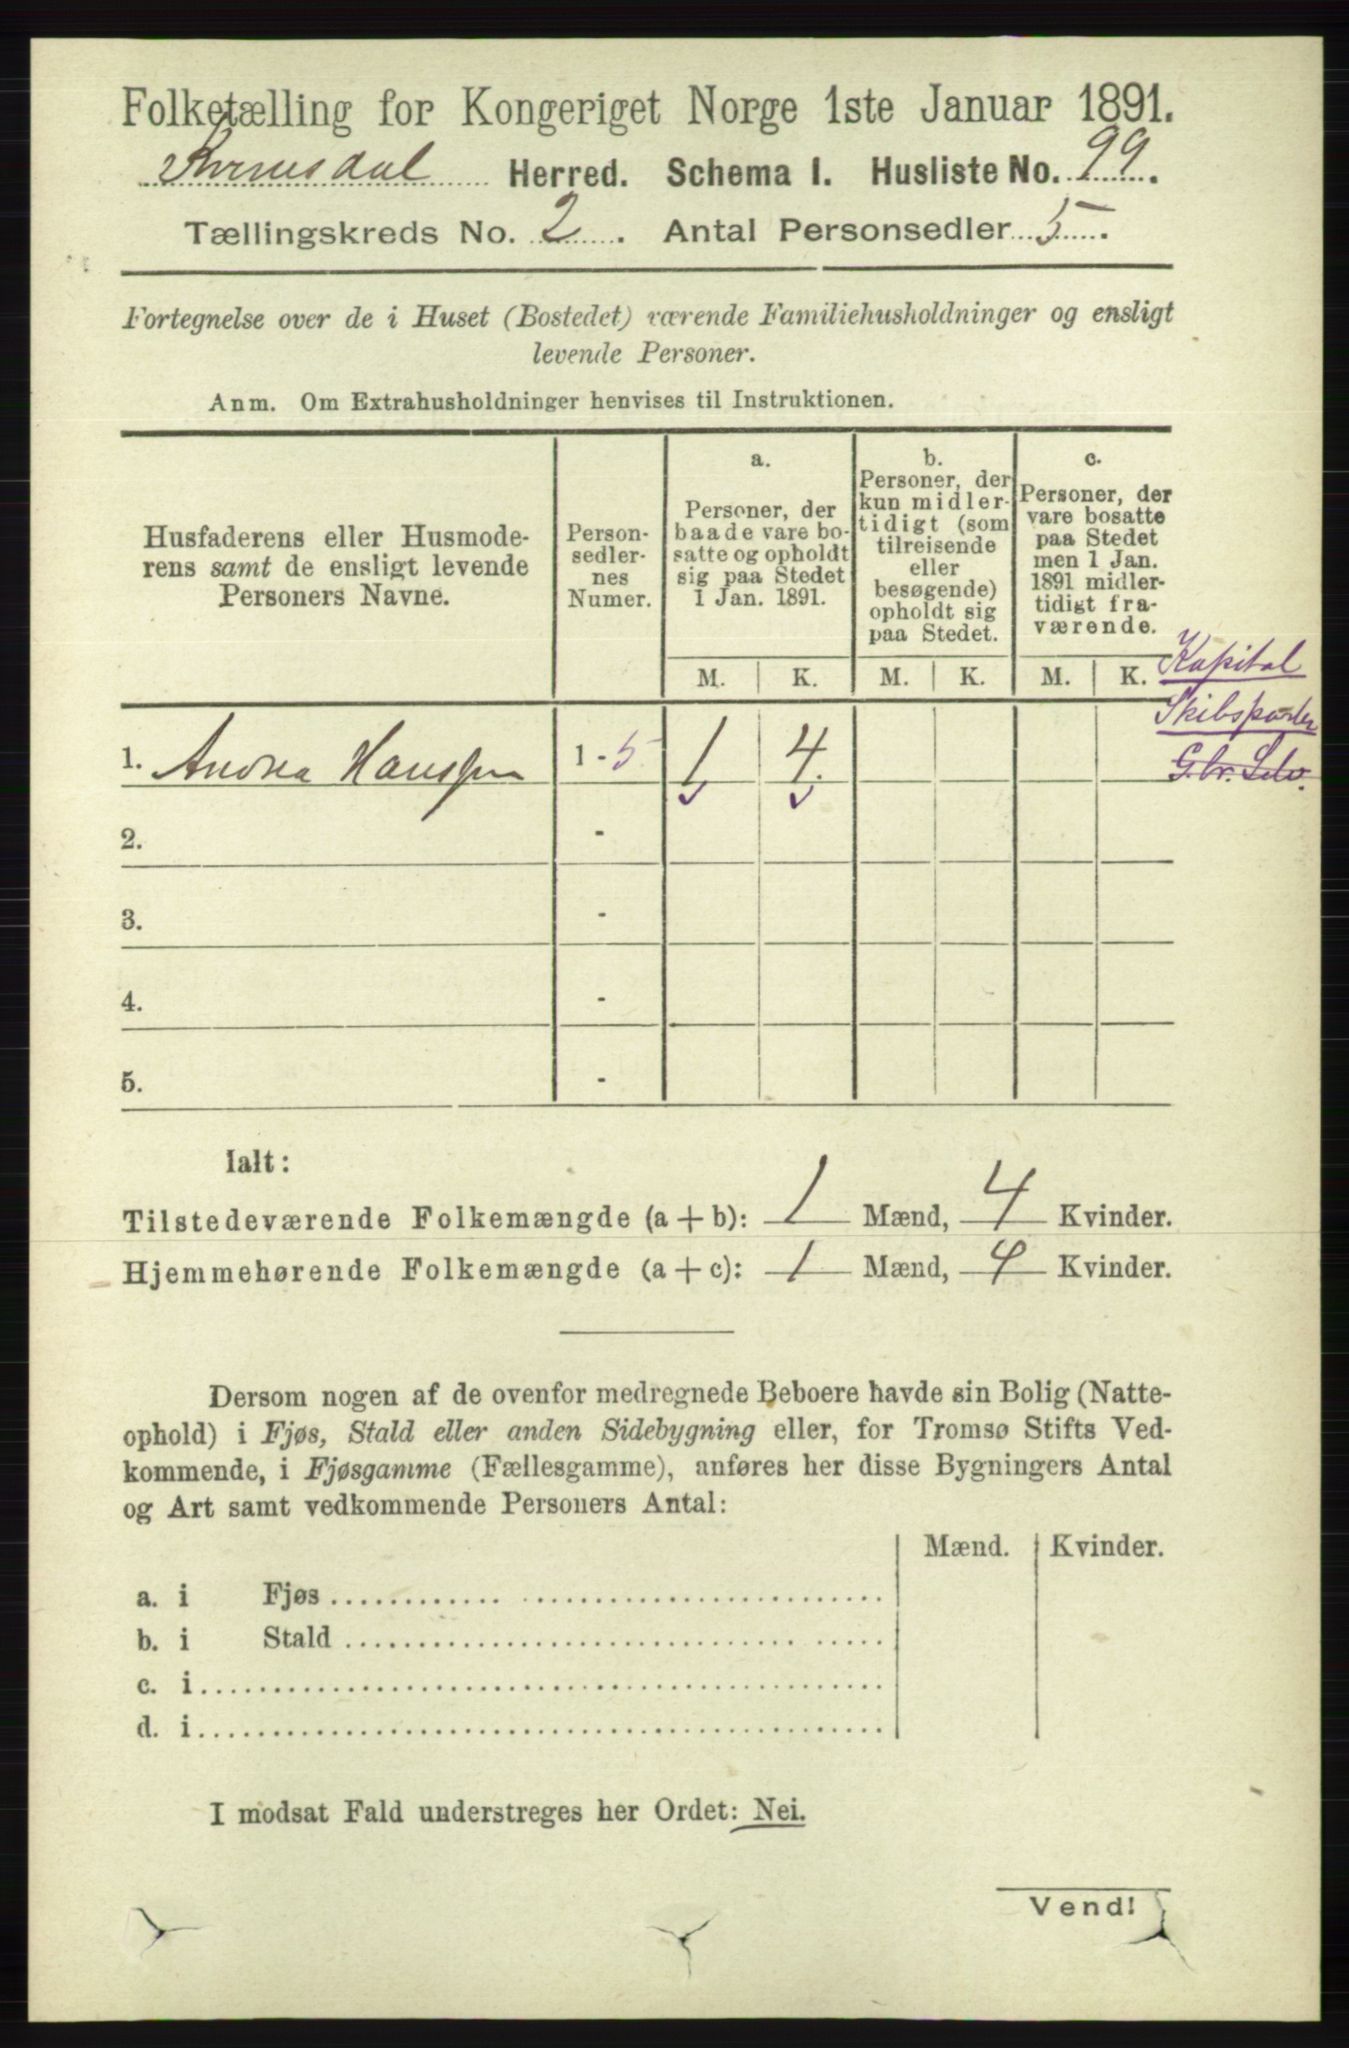 Folketælling for Kongeriget Norge 1ste Januar 1891.
Kvinesdal Herred. Schema I. Husliste No. 99.
Tællingskreds No. 2. Antal Personsedler 5.
Fortegnelse over de i Huset (Bostedet) værende Familiehusholdninger og ensligt
levende Personer.
Anm. Om Extrahusholdninger henvises til Instruktionen.
Husfaderens eller Husmode-
rens samt de ensligt levende
Personers Navne.
Person-
sedler-
nes
Numer.
a.
Personer, der
baade vare bo-
satte og opholdt
sig paa Stedet
1 Jan. 1891.
b.
Personer, der
kun midler-
tidigt (som
tilreisende
eller
besøgende)
opholdt sig
paa Stedet.
c.
Personer, der
vare bosatte
paa Stedet
men 1 Jan.
1891 midler-
tidigt fra-
værende.
M. K. M. K. M. K.
Kapital
Skibsparter
G.br. Selv.
1. Andrea Hanssen 1 - 5 1 4.
2. -
3. -
4. -
5. -
Ialt:
Tilstedeværende Folkemængde (a + b): 1 Mænd, 4 Kvinder.
Hjemmehørende Folkemængde (a + c): 1 Mænd, 4 Kvinder.
Dersom nogen af de ovenfor medregnede Beboere havde sin Bolig (Natte-
ophold) i Fjøs, Stald eller anden Sidebygning eller, for Tromsø Stifts Ved-
kommende, i Fjøsgamme (Fællesgamme), anføres her disse Bygningers Antal
og Art samt vedkommende Personers Antal:
Mænd. Kvinder.
a. i Fjøs
b. i Stald
c. i
d. i
I modsat Fald understreges her Ordet: Nei.
Vend!